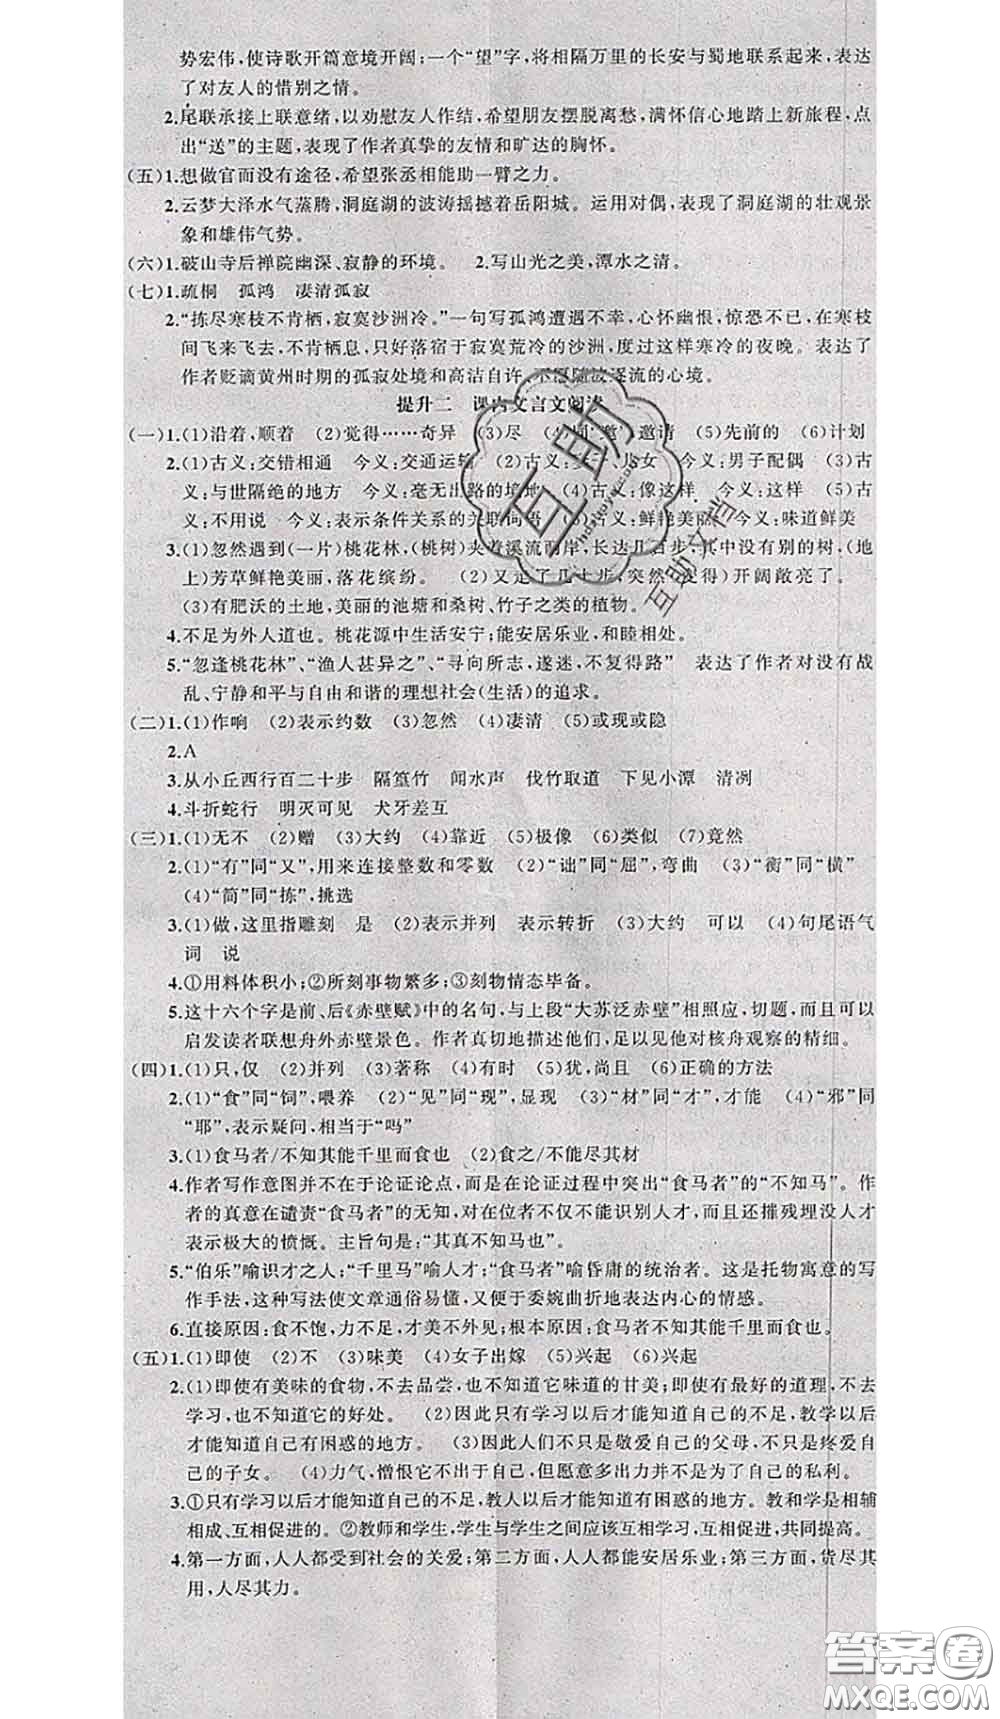 势宏伟,使诗歌开篇意境开阔;一个“望”字,将相隔万里的长安与蜀地联系起来,表达
了对友人的惜别之情。
2.尾联承接上联意绪,以劝慰友人作结,希望朋友摆脱离愁,满怀信心地踏上新旅程,点
出“送”的主题,表现了作者真挚的友情和旷达的胸怀。
(五)1.想做官而没有途径,希望张丞相能助一臂之力。
2.云梦大泽水气蒸腾,洞庭湖的波涛摇撼着岳阳城。运用对偶,表现了洞庭湖的壮观景
象和雄伟气势。
(六)1.破山寺后禅院幽深、寂静的环境。 2.写山光之美,潭水之清。
(七)1.疏桐 孤鸿 凄清孤寂
2.“拣尽寒枝不肯栖,寂寞沙洲冷。”一句写孤鸿遭遇不幸,心怀幽恨,惊恐不已,在寒枝
间飞来飞去,不肯栖息,只好落宿于寂寞荒冷的沙洲,度过这样寒冷的夜晚。表达了
作者贬谪黄州时期的孤寂处境和高洁自许,不愿随波逐流的心境。
提升二 课内文言文阅读
(一)1.(1)沿着,顺着 (2)觉得……奇异 (3)尽 (4)同“邀”,邀请 (5)先前的 (6)计划
2.(1)古义:交错相通 今义:交通运输 (2)古义:妻子、儿女 今义:男子配偶 (3)古
义:与世隔绝的地方 今义:毫无出路的境地 (4)古义:像这样 今义:这样 (5)古
义:不用说 今义:表示条件关系的关联词语 古义:鲜艳美丽 今义:味道鲜美
3.(1)忽然遇到(一片)桃花林,(桃树)夹着溪流两岸,长达几百步,其中没有别的树,(地
上)芳草鲜艳美丽,落花缤纷。 (2)又走了几十步,突然(变得)开阔敞亮了。
(3)有肥沃的土地,美丽的池塘和桑树、竹子之类的植物。
4.不足为外人道也。桃花源中生活安宁;能安居乐业,和睦相处。
5.“忽逢桃花林”、“渔人甚异之”、“寻向所志,遂迷,不复得路” 表达了作者对没有战
乱、宁静和平与自由和谐的理想社会(生活)的追求。
(二)1.(1)作响 (2)表示约数 (3)忽然 (4)凄清 (5)或现或隐
2.A
3.从小丘西行百二十步 隔篁竹 闻水声 伐竹取道 下见小潭 清冽
4.斗折蛇行 明灭可见 犬牙差互
(三)1.(1)无不 (2)赠 (3)大约 (4)靠近 (5)极像 (6)类似 (7)竟然
2.(1)“有”同“又”,用来连接整数和零数 (2)“诎”同“屈”,弯曲 (3)“衡”同“横”
(4)“简”同“拣”,挑选
3.(1)做,这里指雕刻 是 (2)表示并列 表示转折 (3)大约 可以 (4)句尾语气
词 说
4.①用料体积小;②所刻事物繁多;③刻物情态毕备。
5.这十六个字是前、后《赤壁赋》中的名句,与上段“大苏泛赤壁”相照应,切题,而且可以
启发读者联想舟外赤壁景色。作者真切地描述他们,足以见他对核舟观察的精细。
(四)1.(1)只,仅 (2)并列 (3)著称 (4)有时 (5)犹,尚且 (6)正确的方法
2.(1)“食”同“饲”,喂养 (2)“见”同“现”,显现 (3)“材”同“才”,才能 (4)“邪”同
“耶”,表示疑问,相当于“吗”
3.(1)食马者/不知其能千里而食也 (2)食之/不能尽其材
4.作者写作意图并不在于论证论点,而是在论证过程中突出“食马者”的“不知马”。作
者的真意在谴责“食马者”的无知,对在位者不仅不能识别人才,而且还摧残埋没人才
表示极大的愤慨。主旨句是:“其真不知马也”。
5.“伯乐”喻识才之人;“千里马”喻人才;“食马者”喻昏庸的统治者。这是托物寓意的写
作手法,这种写法使文章通俗易懂,又便于委婉曲折地表达内心的情感。
6.直接原因:食不饱,力不足,才美不外见;根本原因:食马者不知其能千里而食也。
(五)1.(1)即使 (2)不 (3)味美 (4)女子出嫁 (5)兴起 (6)兴起
2.(1)即使有美味的食物,不去品尝,也不知道它味道的甘美;即使有最好的道理,不去
学习,也不知道它的好处。 (2)因此只有学习以后才能知道自己的不足,教学以后
才能知道自己有困惑的地方。 (3)因此人们不只是敬爱自己的父母,不只是疼爱自
己的子女。 (4)力气,憎恨它不出于自己,但愿意多出力并不是为了自己的私利。
3.①只有学习以后才能知道自己的不足,教人以后才能知道有困惑的地方。教和学是相辅
相成、互相促进的。②教师和学生,学生与学生之间应该互相学习,互相促进,共同提高。
4.第一方面,人人都受到社会的关爱;第二方面,人人都能安居乐业;第三方面,货尽其
用,人尽其力。
互助
互助文档
答案圈
MXQE.COM